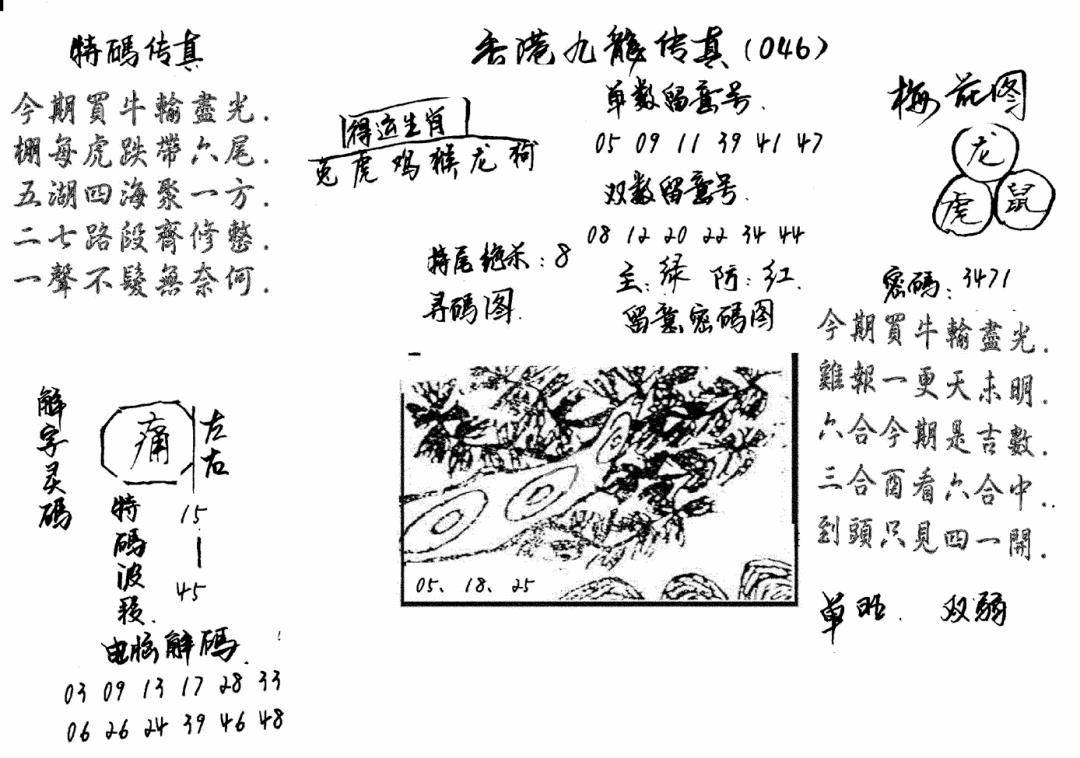 特碼传真
今期買牛輸盡光.
棚每虎跌帶六尾.
五湖四海聚一方.
二七路段齊修整.
一聲不髮無奈何.
香港九龍传真(046)
得运生肖
兔虎鸡猴龙狗
单数留意号.
05 09 11 39 41 47
双数留意号.
08 12 20 22 34 44
特尾绝杀:8
主:绿 防:红.
寻码图.
留意密码图
05. 18. 25
梅花图
龙
虎 鼠
密碼:3471
今期買牛輸盡光.
雞報一更天未明.
六合今期是吉數.
三合酉看六合中..
到頭只見四一開.
单旺. 双弱
解字灵碼
痛
左右
特碼波段.
15
|
45
电脑解碼.
03 09 13 17 28 33
06 26 24 39 46 48